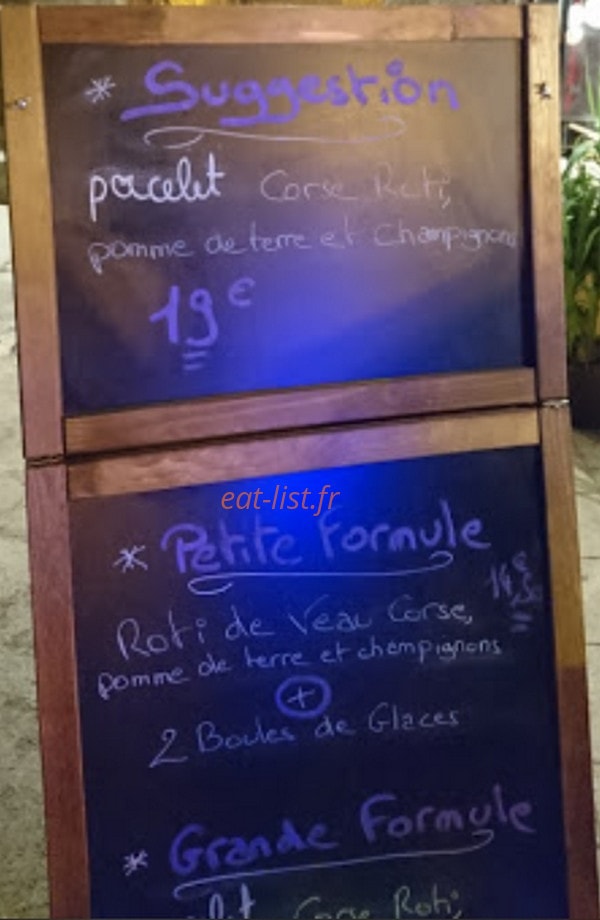 * Suggestion
pacelet Corse Roti,
pomme de terre et champignons
19€
eat-list.fr
* Petite Formule
14€,50
Roti de Veau Corse,
pomme de terre et champignons
+
2 Boules de Glaces
* Grande Formule
Corse Roti,